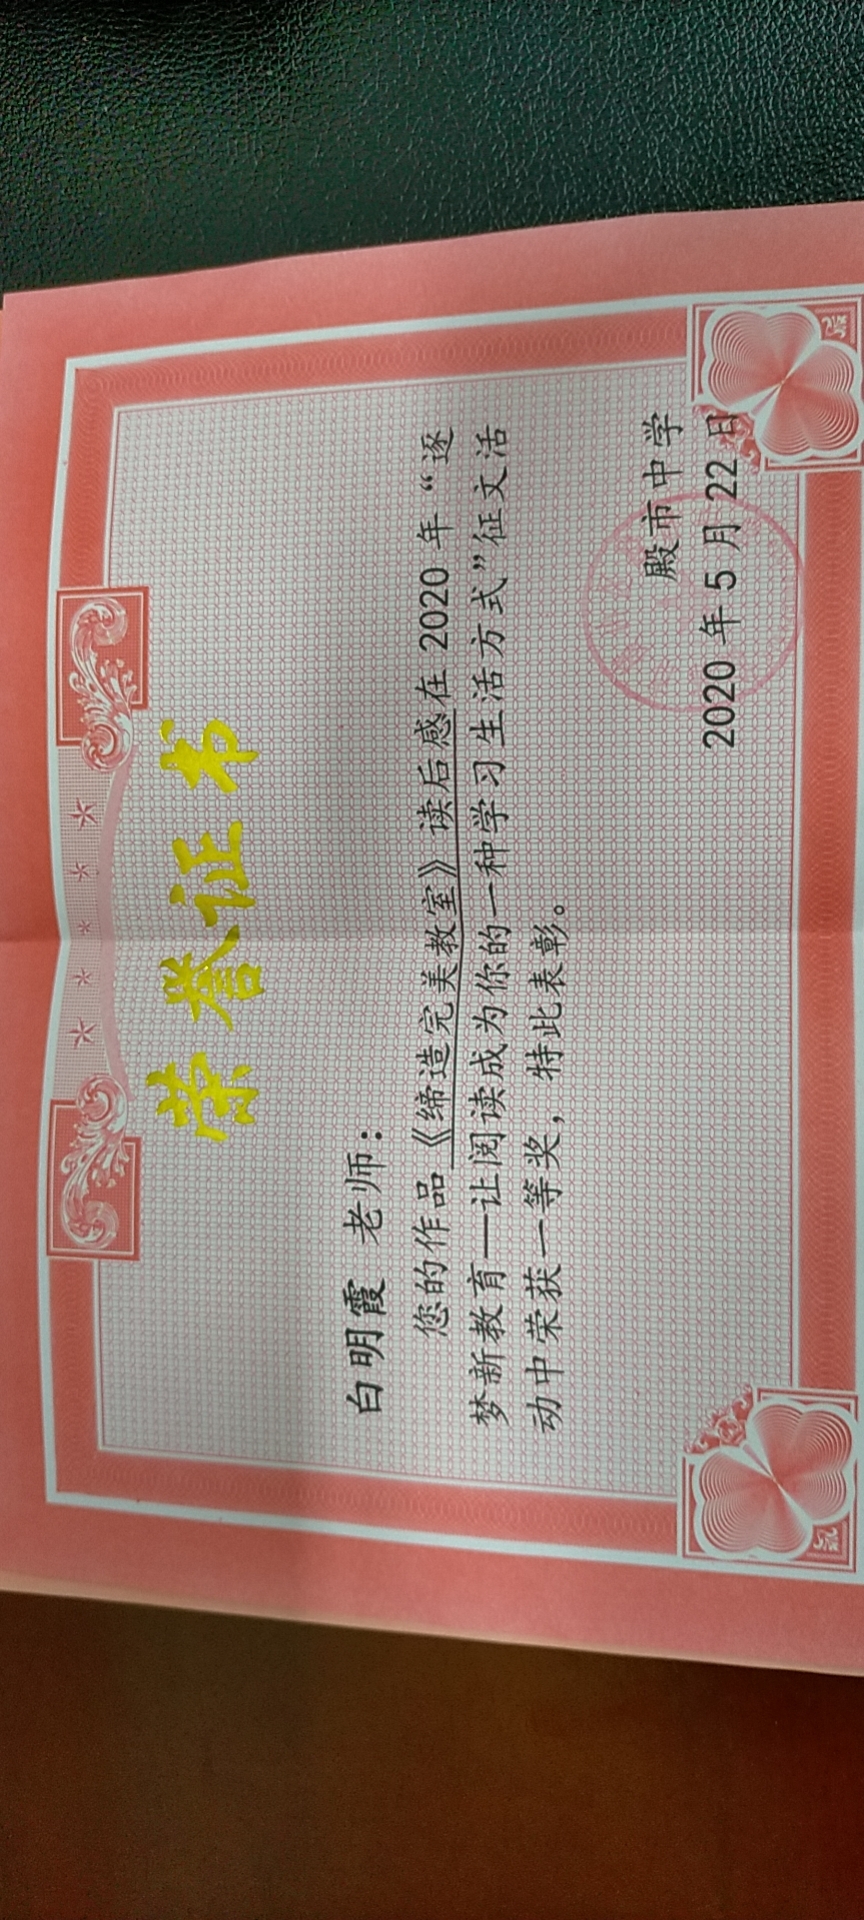 荣誉证书
白明霞 老师：
您的作品《缔造完美教室》读后感在 2020 年“逐
梦新教育—让阅读成为你的一种学习生活方式”征文活
动中荣获一等奖，特此表彰。
殿市中学
2020 年 5 月 22 日